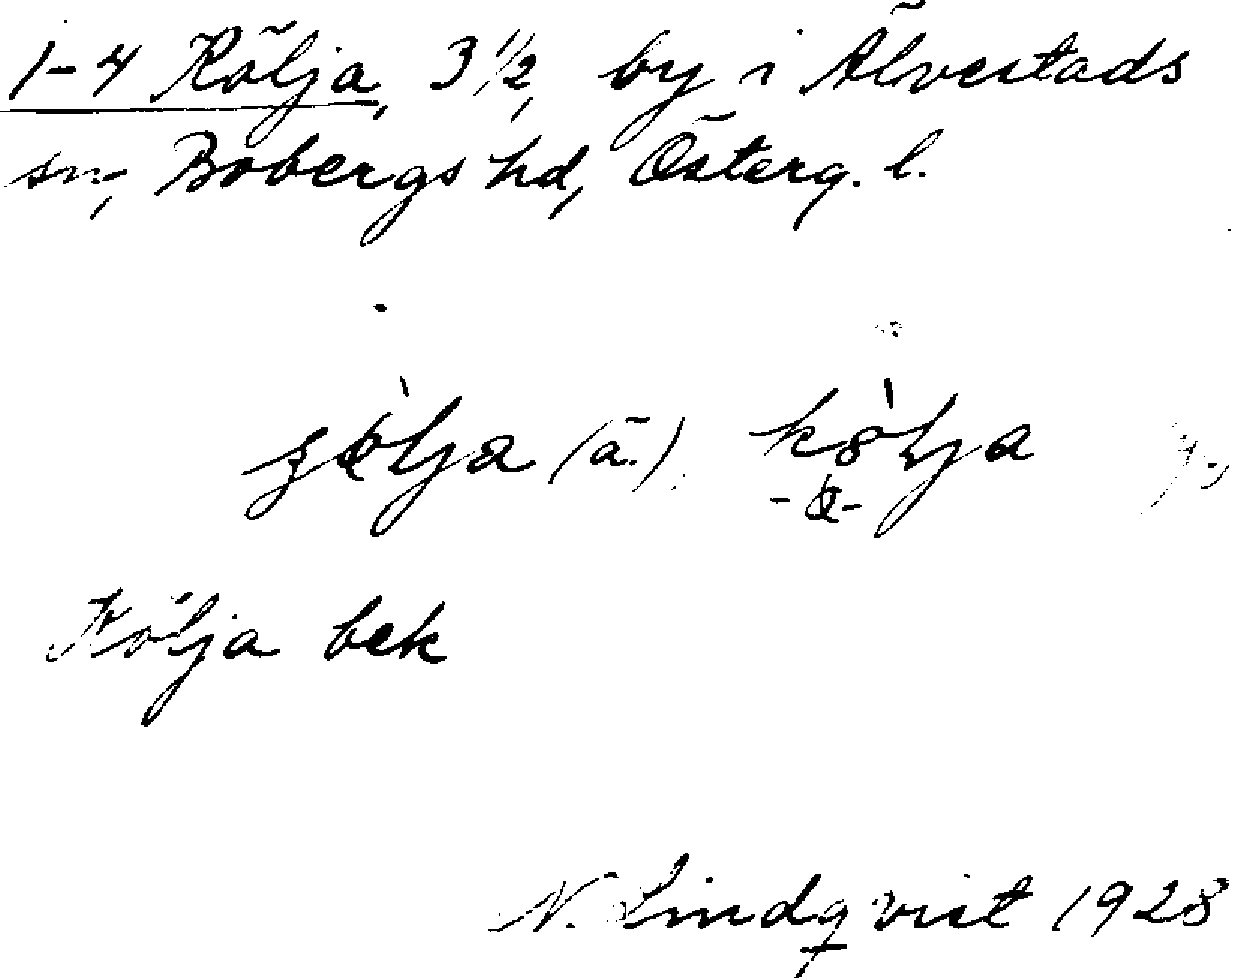 1-4 Kölja, 3 1/2, by i Älvestads
sn, Bobergs hd, Österg. l.
(ä.)
Kölja bek
N. Lindqvist 1928